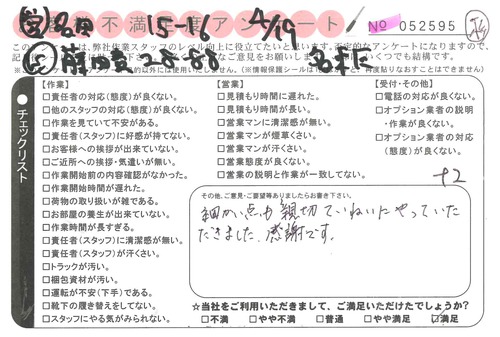 不満足度アンケート
No 052595
15-16 4/19
28-88
この
【作業】
□責任者の対応(態度)が良くない。
□他のスタッフの対応(態度)が良くない。
□作業を見ていて不安がある。
□責任者(スタッフ)に好感が持てない。
□お客様への挨拶が出来ていない。
□ご近所への挨拶・気遣いが無い。
□作業開始前の内容確認がなかった。
□作業開始時間が遅れた。
□荷物の取り扱いが雑である。
□お部屋の養生が出来ていない。
□作業時間が長すぎる。
□責任者(スタッフ)に清潔感が無い。
□責任者(スタッフ)が汗くさい。
□トラックが汚い。
□梱包資材が汚い。
□運転が不安(下手)である。
□靴下の履き替えをしてない。
□スタッフにやる気がみられない。
チェックリスト
【営業】
□見積もり時間に遅れた。
□見積もり時間が長い。
□営業マンに清潔感が無い。
□営業マンが煙草くさい。
□営業マンが汗くさい。
□営業態度が良くない。
□営業の説明と作業が一致してない。
【受付・その他】
□電話の対応が良くない。
□オプション業者の説明
・作業が良くない。
□オプション業者の対応
(態度)が良くない。
+2
その他、ご意見・ご要望等ありましたらお書き下さい。
細かい点も親切ていねいにやっていた
だきました。感謝です。
☆当社をご利用いただきまして、ご満足いただけたでしょうか?
□不満 □やや不満 □普通 □やや満足 ☑満足